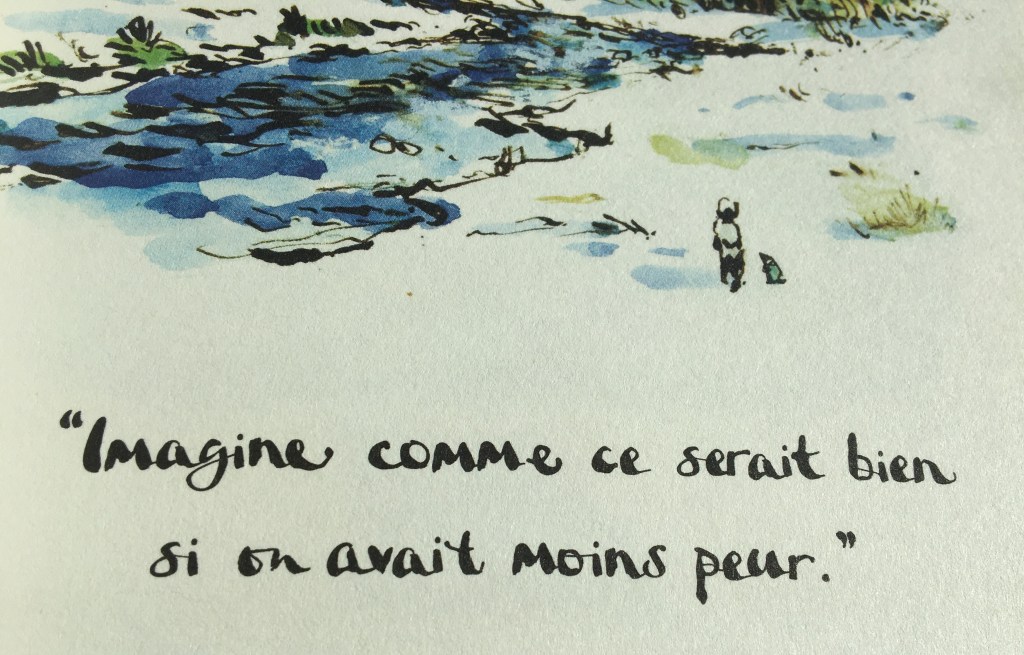 “Imagine comme ce serait bien
si on avait moins peur.”